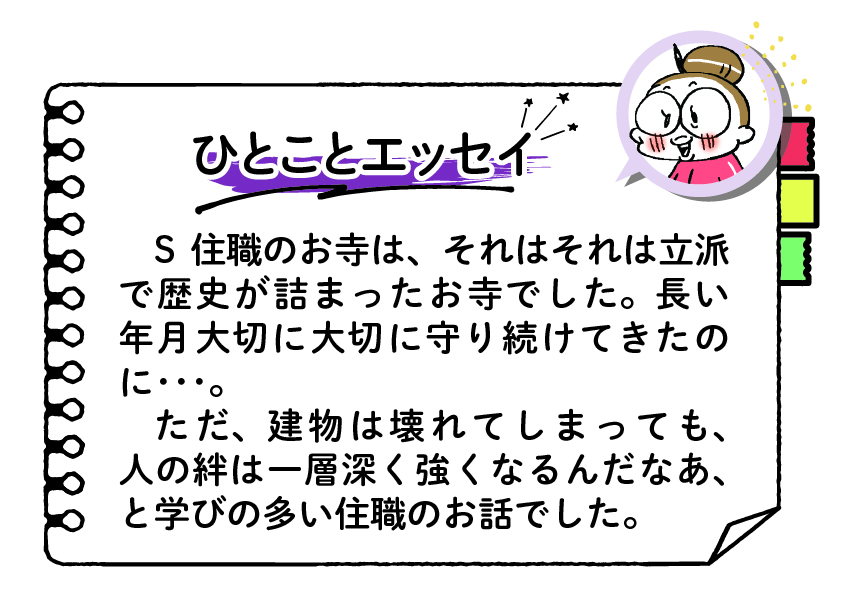 ひとことエッセイ
S 住職のお寺は、それはそれは立派
で歴史が詰まったお寺でした。長い
年月大切に大切に守り続けてきたの
に･･･。
ただ、建物は壊れてしまっても、
人の絆は一層深く強くなるんだなあ、
と学びの多い住職のお話でした。